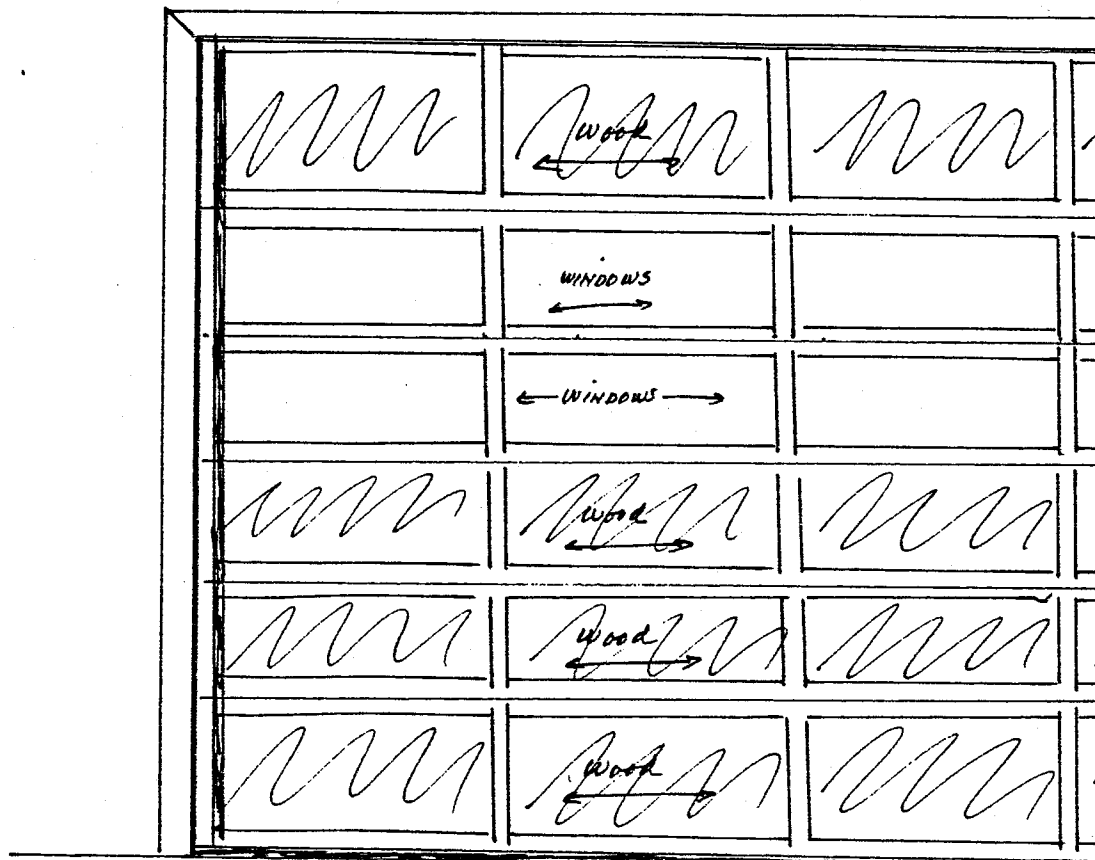 wood
WINDOWS
WINDOWS
wood
wood
wood